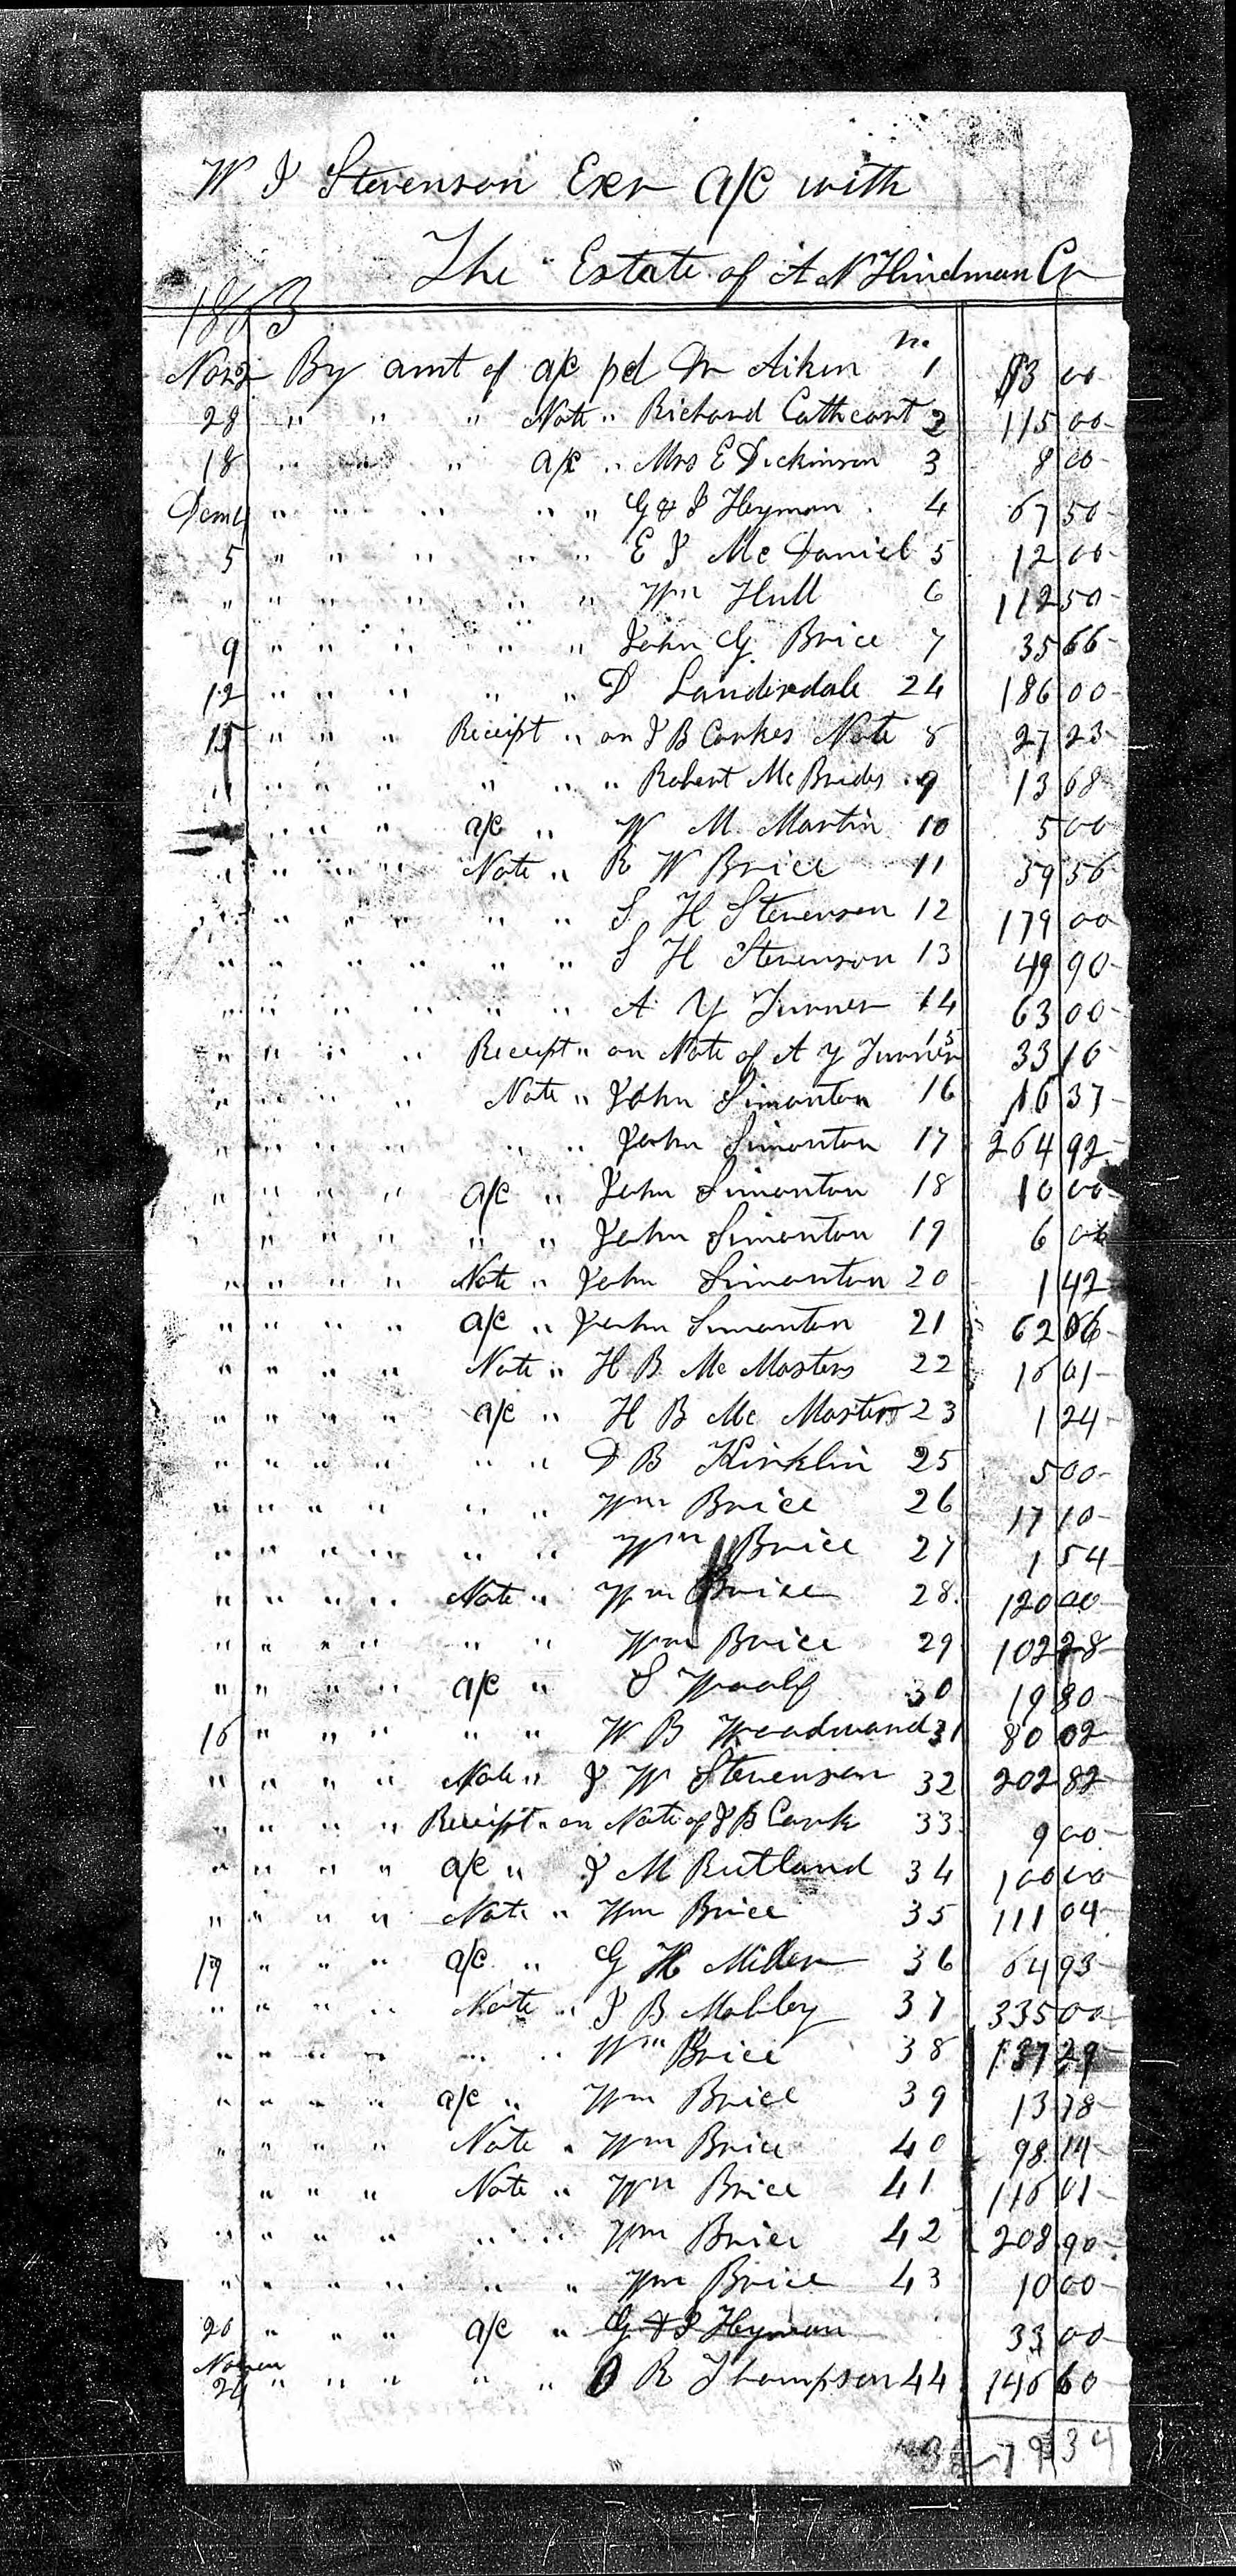 W J Stevenson Exr a/c with
The Estate of A N Hindman Cr
1863
No.
Nov 2 By amt of a/c pd Aiken 1 83 00
28 " " " Note " Richard Cathcart 2 115 00
18 " " " a/c " Mrs E Dickinson 3 8 00
Decm 4 " " " " " G & J Heyman 4 67 50
5 " " " " " E J Mc Daniel 5 12 00
" " " " " " Wm Hull 6 112 50
9 " " " " " John G. Brice 7 35 66
12 " " " " " D Lauderdale 24 186 00
15 " " " Receipt " on J B Corkes Note 8 27 23
" " " " " " " Robert Mc Brides 9 13 68
" " " a/c " W M Martin 10 5 00
" " " " Note " R W Brice 11 39 56
" " " " " " S H Stevenson 12 179 00
" " " " " " S H Stevenson 13 49 90
" " " " " " A Y Turner 14 63 00
" " " " Receipt " on Note of A Y Turner 15 33 16
" " " " Note " John Simonton 16 16 37
" " " " " " John Simonton 17 264 92
" " " " a/c " John Simonton 18 10 00
" " " " " " John Simonton 19 6 00
" " " " Note " John Simonton 20 1 42
" " " " a/c " John Simonton 21 62 06
" " " " Note " H B Mc Masters 22 16 01
" " " " a/c " H B Mc Masters 23 1 24
" " " " " " D B Kirklin 25 5 00
" " " " " " Wm Brice 26 17 10
" " " " " " Wm Brice 27 1 54
" " " " Note " Wm Brice 28 120 00
" " " " " " Wm Brice 29 102 28
" " " " a/c " S Woolf 30 19 80
16 " " " " " W B Woodward 31 80 02
" " " " Note " J W Stevenson 32 202 82
" " " " Receipt " on Note of J B Cork 33 9 00
" " " " a/c " J M Rutland 34 100 00
" " " " Note " Wm Brice 35 111 04
19 " " " a/c " G H Miller 36 64 93
" " " " Note " J B Mobley 37 335 00
" " " " " " Wm Brice 38 137 29
" " " " a/c " Wm Brice 39 13 78
" " " " Note " Wm Brice 40 98 14
" " " Note " Wm Brice 41 116 01
" " " " " " Wm Brice 42 208 90
" " " " " " Wm Brice 43 10 00
20 " " " a/c " G & J Heyman 33 00
Novem
24 " " " " " R Thompson 44 146 60
34